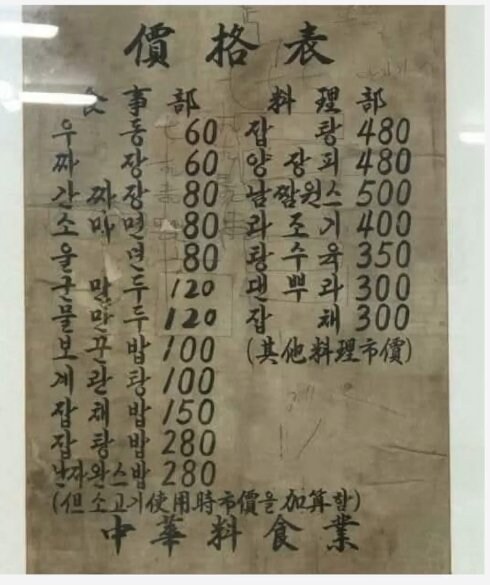 價格表
食事部
우동 60
짜장 60
간짜장 80
소마면 80
울면 80
군만두 120
물만두 120
보끈밥 100
계란탕 100
잡채밥 150
잡탕밥 280
난자완스밥 280
(但소고기使用時市價을加算함)
料理部
잡탕 480
양장피 480
500
라조기 400
탕수육 350
덴뿌라 300
잡채 300
(其他料理市價)
中華料食業